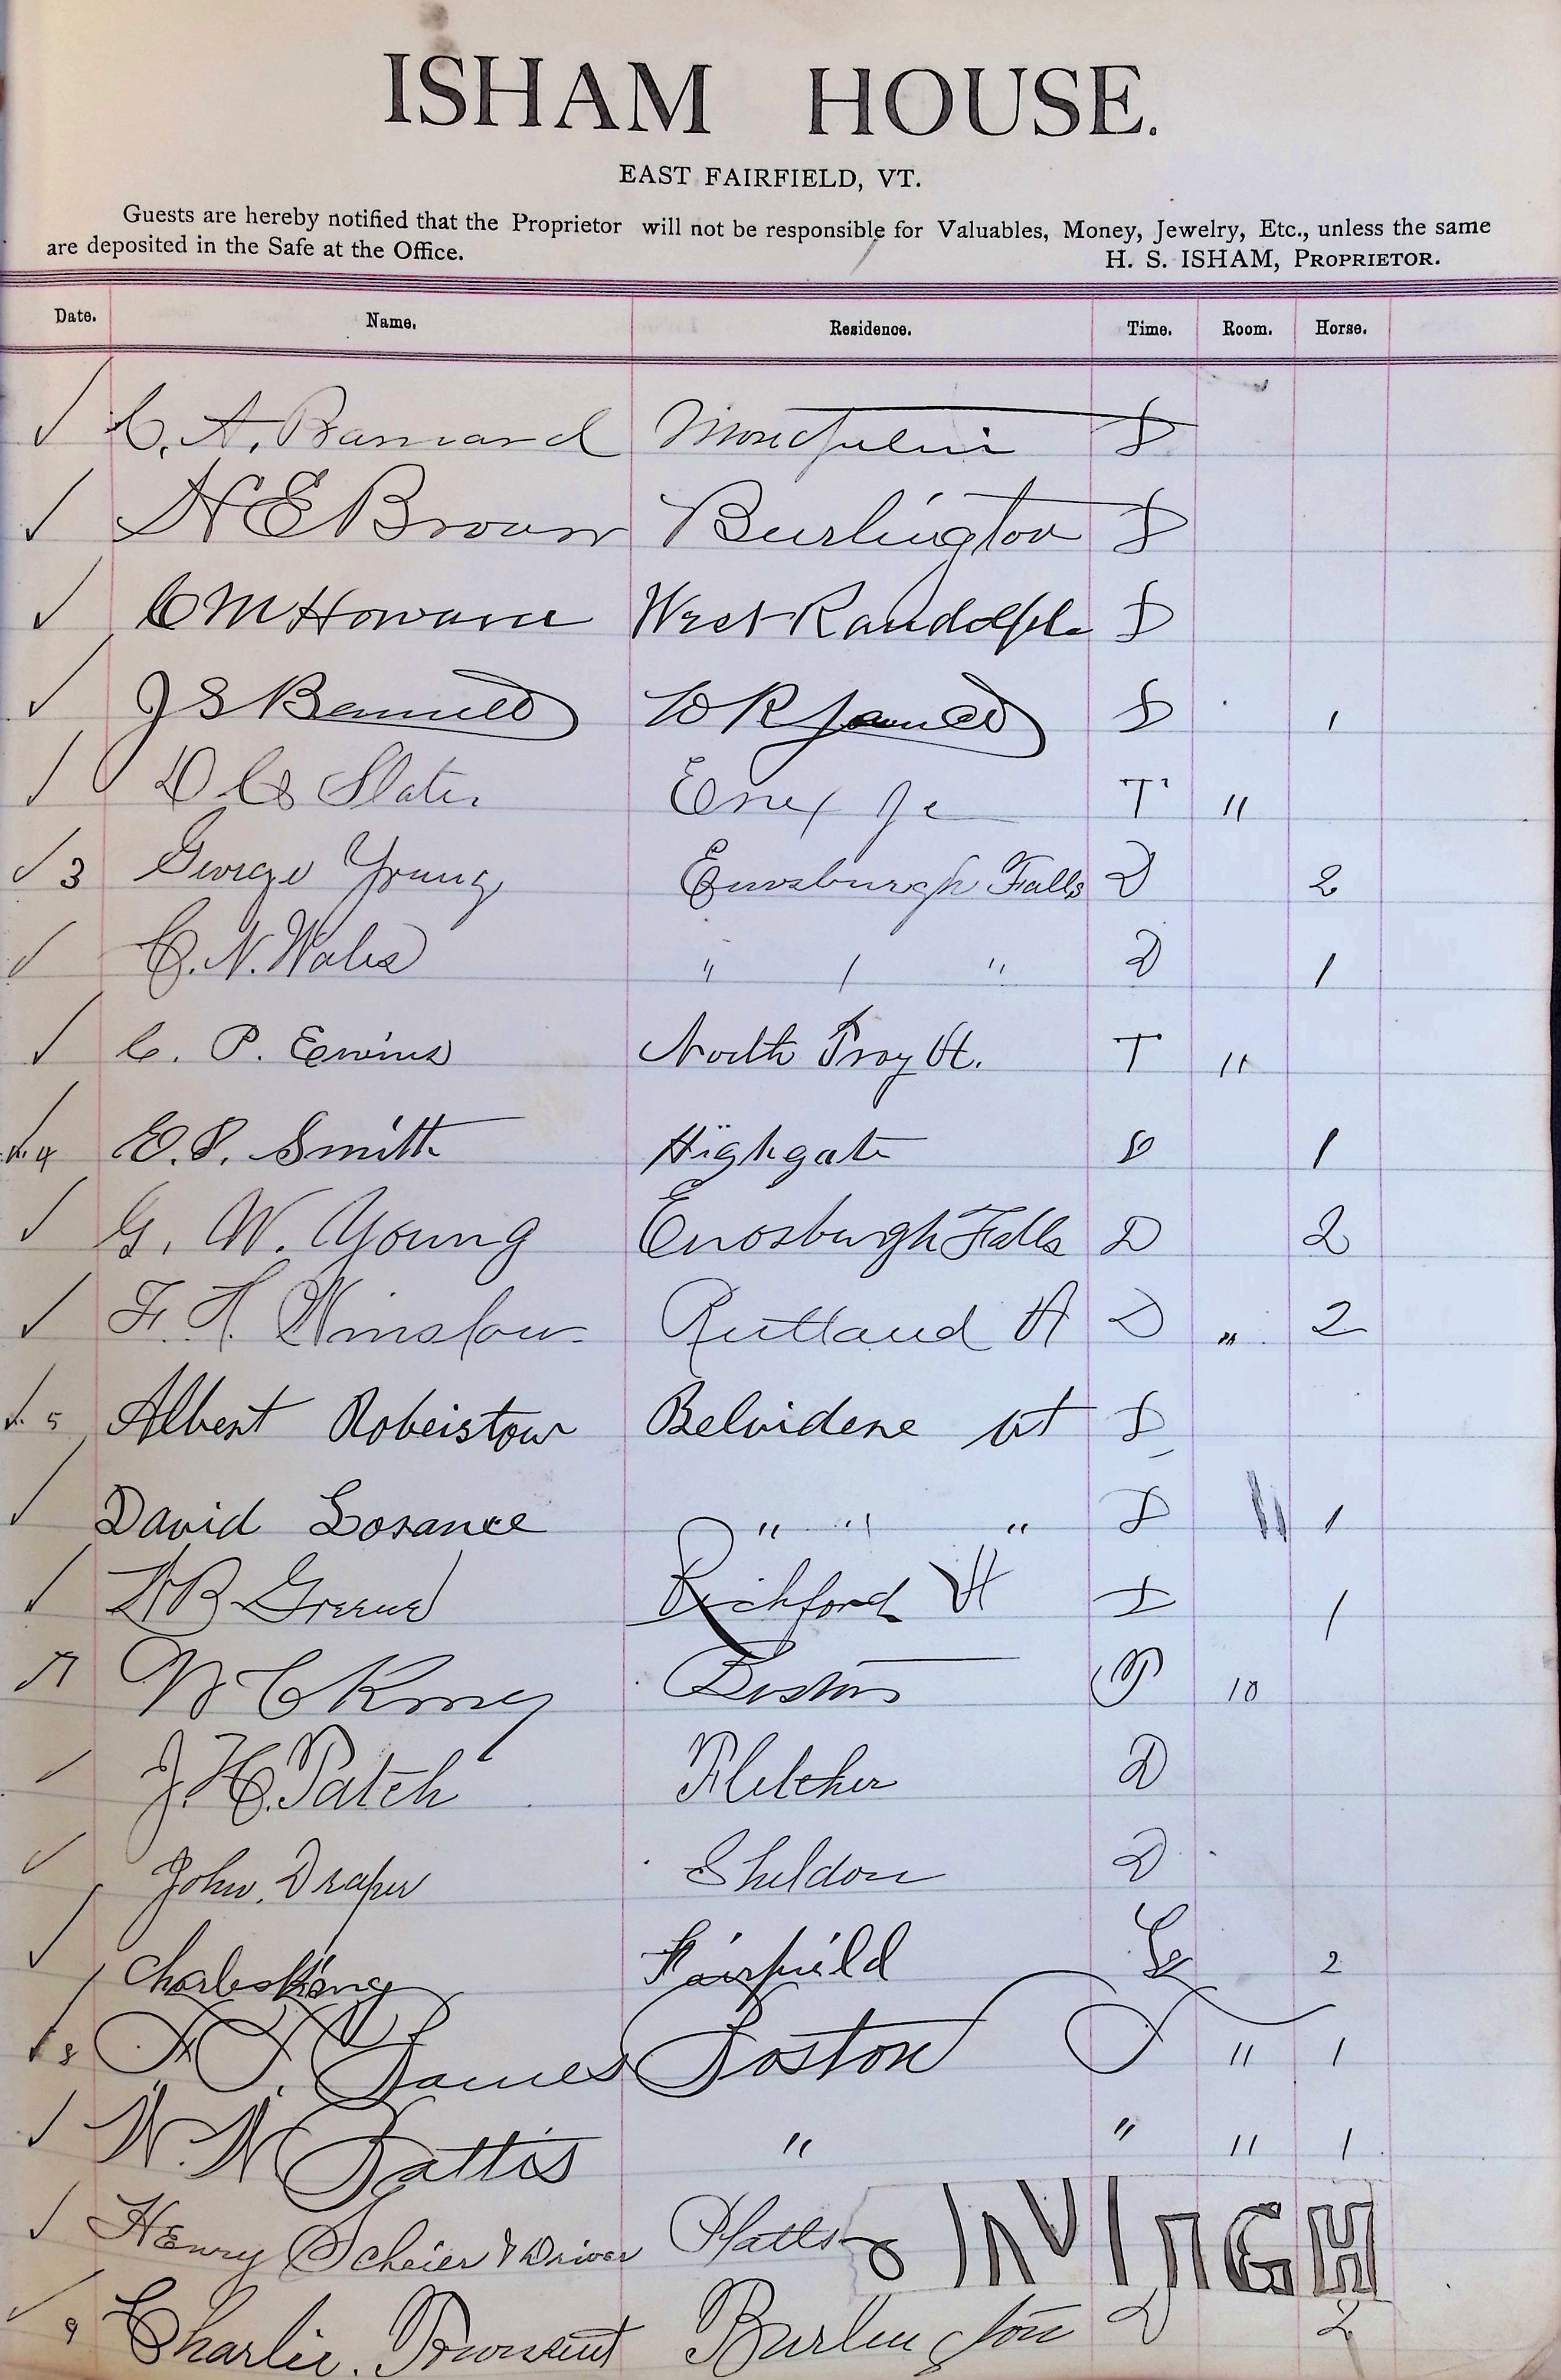 ISHAM HOUSE.
EAST FAIRFIELD, VT.
Guests are hereby notified that the Proprietor will not be responsible for Valuables, Money, Jewelry, Etc., unless the same
are deposited in the Safe at the Office. H. S. ISHAM, PROPRIETOR.
Date. Name. Residence. Time. Room. Horse.
C. A. Barnard Montpelier S
H E Brown Burlington S
C M Howard West Randolph S
J S Bennett S 1
D C Slater Essex Jc T "
3 George Young Enosburgh Falls D 2
C. N. Wales " / " D 1
C. P. Erwins North Troy Vt. T 11
4 E. P. Smith Highgate D 1
G. W. Young Enosburgh Falls D 2
F. H. Winslow Rutland Vt D " 2
5 Albert Robeistow Belvidere vt S
David Lorance " " " S 11 1
Greene Richford Vt 1
7 W C King Boston 10
J. H. Patch Fletcher D
John Draper Sheldon D
Charles King Fairfield 2
8 James Boston 11 1
W. N. Battis " " 11 1
Henry Scheier & Driver Platts
9 Charlie. Townsent Burlington D 2